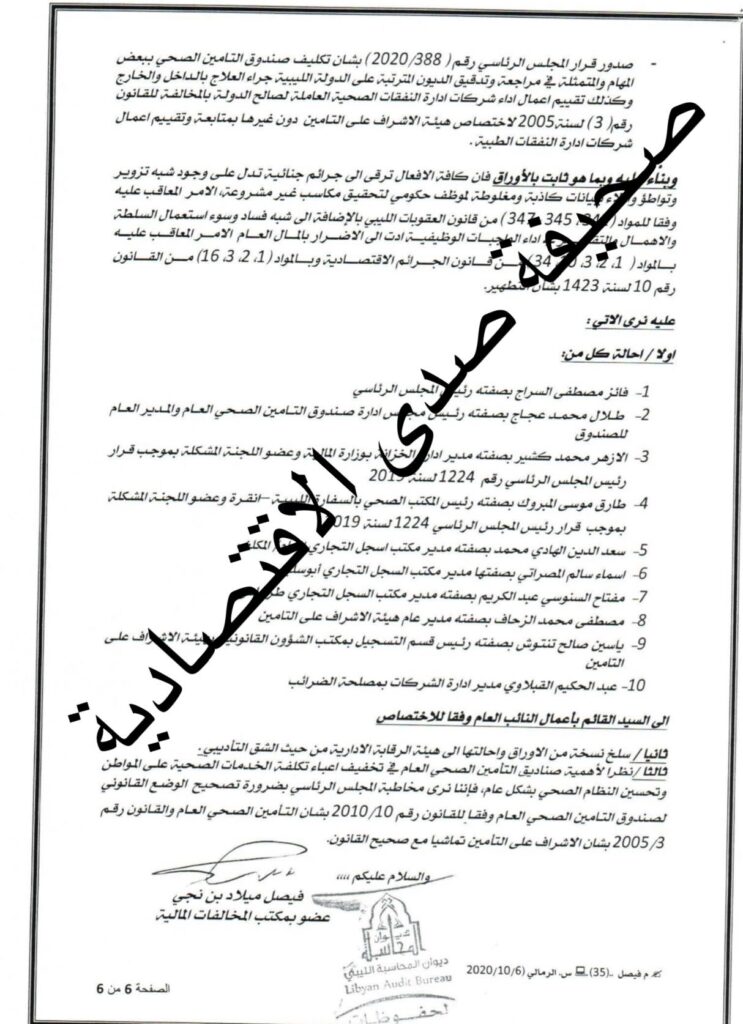 - صدور قرار المجلس الرئاسي رقم ( 2020/388) بشان تكليف صندوق التامين الصحي ببعض
المهام والمتمثلة في مراجعة وتدقيق الديون المترتبة على الدولة الليبية جراء العلاج بالداخل والخارج
وكذلك تقييم اعمال اداء شركات ادارة النفقات الصحية العاملة لصالح الدولة بالمخالفة للقانون
رقم( 3 ) لسنة 2005 لاختصاص هيئة الاشراف على التامين دون غيرها بمتابعة وتقييم اعمال
شركات ادارة النفقات الطبية.
وبناء عليه وبما هو ثابت بالأوراق فان كافة الافعال ترقى الى جرائم جنائية تدل على وجود شبه تزوير
وتواطؤ بيانات كاذبة ومغلوطة لموظف حكومي لتحقيق مكاسب غير مشروعة، الامر المعاقب عليه
وفقا للمواد ( 345، 347) من قانون العقوبات الليبي بالإضافة الى شبه فساد وسوء استعمال السلطة
والاهمال اداء الواجبات الوظيفية ادت الى الاضرار بالمال العام الامر المعاقب عليه
بالمواد ( 1، 2، 3، 34) من قانون الجرائم الاقتصادية وبالمواد (1، 2، 3، 16) من القانون
رقم 10 لسنة 1423 بشان التطهير.
عليه نرى الاتي :
اولا / احالة كل من:
1- فائز مصطفى السراج بصفته رئيس المجلس الرئاسي
2- طلال محمد عجاج بصفته رئيس مجلس ادارة صندوق التامين الصحي العام والمدير العام
للصندوق
3- الازهر محمد كشير بصفته مدير ادارة الخزانة بوزارة المالية وعضو اللجنة المشكلة بموجب قرار
رئيس المجلس الرئاسي رقم 1224 لسنة 2019
4- طارق موسى المبروك بصفته رئيس المكتب الصحي بالسفارة الليبية –انقرة وعضو اللجنة المشكلة
بموجب قرار رئيس المجلس الرئاسي 1224 لسنة 2019
5- سعد الدين الهادي محمد بصفته مدير مكتب اسجل التجاري المكلف
6- اسماء سالم المصراتي بصفتها مدير مكتب السجل التجاري أبوسليم
7- مفتاح السنوسي عبد الكريم بصفته مدير مكتب السجل التجاري طرابلس
8- مصطفى محمد الزحاف بصفته مدير عام هيئة الاشراف على التامين
9- ياسين صالح تنتوش بصفته رئيس قسم التسجيل بمكتب الشؤون القانونية بهيئة الاشراف على
التامين
10- عبد الحكيم القبلاوي مدير ادارة الشركات بمصلحة الضرائب
الى السيد القائم بأعمال النائب العام وفقا للاختصاص
ثانيا / سلخ نسخة من الاوراق واحالتها الى هيئة الرقابة الادارية من حيث الشق التأديبي.
ثالثا /نظرا لأهمية صناديق التأمين الصحي العام في تخفيف اعباء تكلفة الخدمات الصحية على المواطن
وتحسين النظام الصحي بشكل عام، فإننا نرى مخاطبة المجلس الرئاسي بضرورة تصحيح الوضع القانوني
لصندوق التامين الصحي العام وفقا للقانون رقم 2010/10 بشان التأمين الصحي العام والقانون رقم
2005/3 بشان الاشراف على التأمين تماشيا مع صحيح القانون.
والسلام عليكم ،،،،
فيصل ميلاد بن نجي
عضو بمكتب المخالفات المالية
ديوان المحاسبة الليبي
Libyan Audit Bureau
المحفوظات
م فيصل ..(35) س. الرمالي (2020/10/6)
الصفحة 6 من 6
صحيفة صدى الاقتصادية